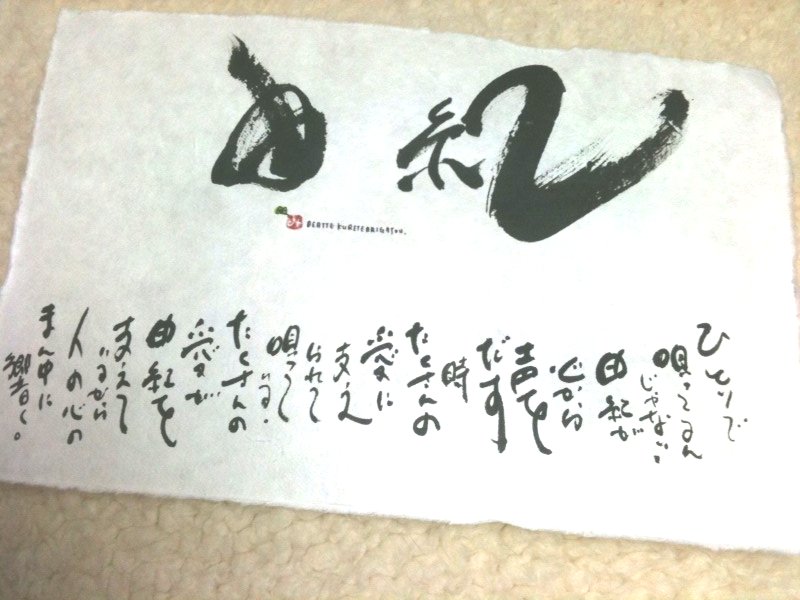 由紀
DEATTE KURETE ARIGATOU.
ひとりで
唄ってるん
じゃない。
由紀が
心から
声を
だす
時
たくさんの
愛に
支え
られて
唄って
いる。
たくさんの
愛が
由紀を
支えて
いるから
人の心の
まん中に
響く。